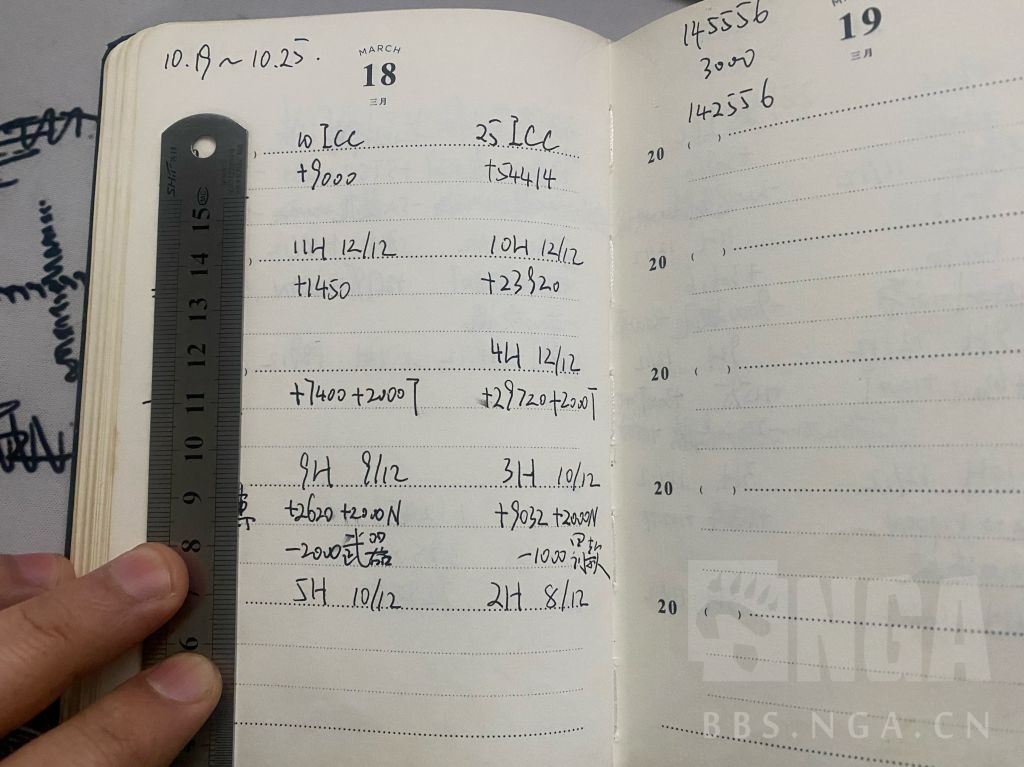 MARCH
18
三月
10 ICC
25 ICC
+9000
+54414
11H 12/12
10H 12/12
+1450
+23920
4H 12/12
+7400+2000T
+29720+2000T
9H 9/12
3H 10/12
+2620+2000N
+9032+2000N
-2000武器
-1000罚款
5H 10/12
2H 8/12
145556
3000
142556
19
三月
20 ( )
20 ( )
20 ( )
20 ( )
20 ( )
15
14
13
12
11
10
9
8
7
6
NGA
BBS.NGA.CN